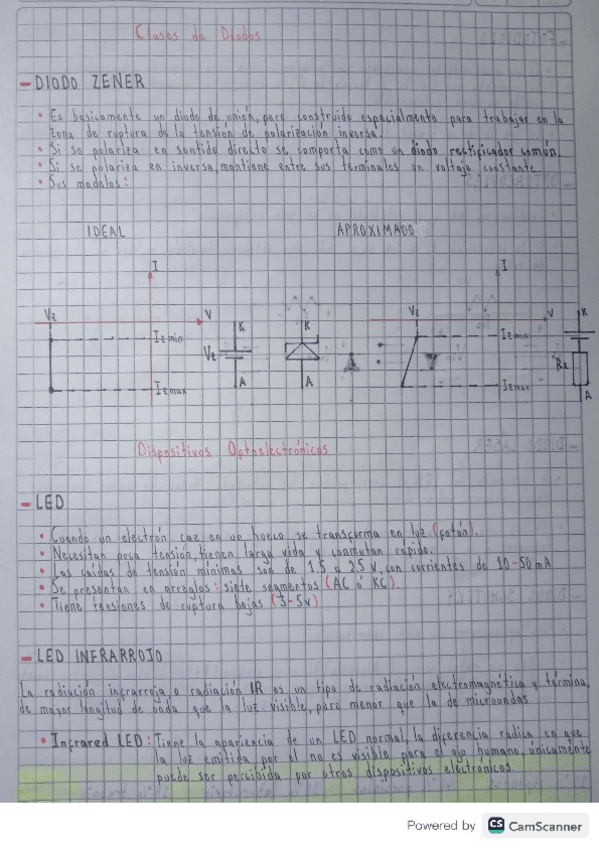 Clases de Diodos
- DIODO ZENER
• Es basicamente un diodo de unión, pero construido espacialmente para trabajar en la
zona de ruptura de la tension de polarización inversa.
• Si se polariza en sentido directo se comporta como un diodo rectificador común.
• Si se polariza en inversa, mantiene entre sus terminales un voltaje constante.
• Sus modelos:
IDEAL APROXIMADO
I I
Vz V K K Vz V K
Iz min Vz Iz min
Rz
Iz max A A Iz max A
Dispositivos Optoelectrónicos
- LED
• Cuando un electrón cae en un hueco se transforma en luz (fotón).
• Necesitan poca tensión, tienen larga vida y conmutan rapido.
• Las caídas de tensión mínimas son de 1.5 a 2.5 v, con corrientes de 10-50 mA
• Se presentan en arreglos: siete segmentos (AC ó KC).
• Tiene tensiones de ruptura bajas (3-5v)
- LED INFRARROJO
La radiación infrarroja, o radiación IR es un tipo de radiación electromagnética y términa,
de mayor longitud de onda que la luz visible, pero menor que la de microondas
• Infrared LED: Tiene la apariencia de un LED normal, la diferencia radica en que
la luz emitida por el no es visible para el ojo humano, únicamente
puede ser percibida por otros dispositivos electrónicos
Powered by CS CamScanner